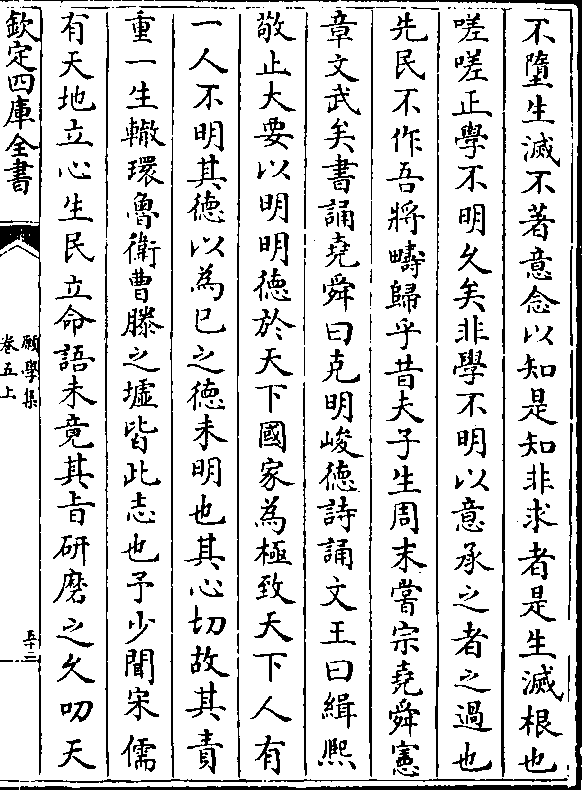 不墮生滅不著意念以知是知非求者是生滅根也
嗟嗟正學不明久矣非學不明以意承之者之過也
先民不作吾將疇歸乎昔夫子生周末嘗宗堯舜憲
章文武矣書誦堯舜曰克明峻德詩誦文王曰緝熙
敬止大要以明明德於天下國家為極致天下人有
一人不明其德以為已之德未明也其心切故其責
重一生轍環魯衛曹滕之墟皆此志也予少聞宋儒
有天地立心生民立命語未竟其旨研磨之久叨天
欽定四庫全書
願學集
卷五上
五十二